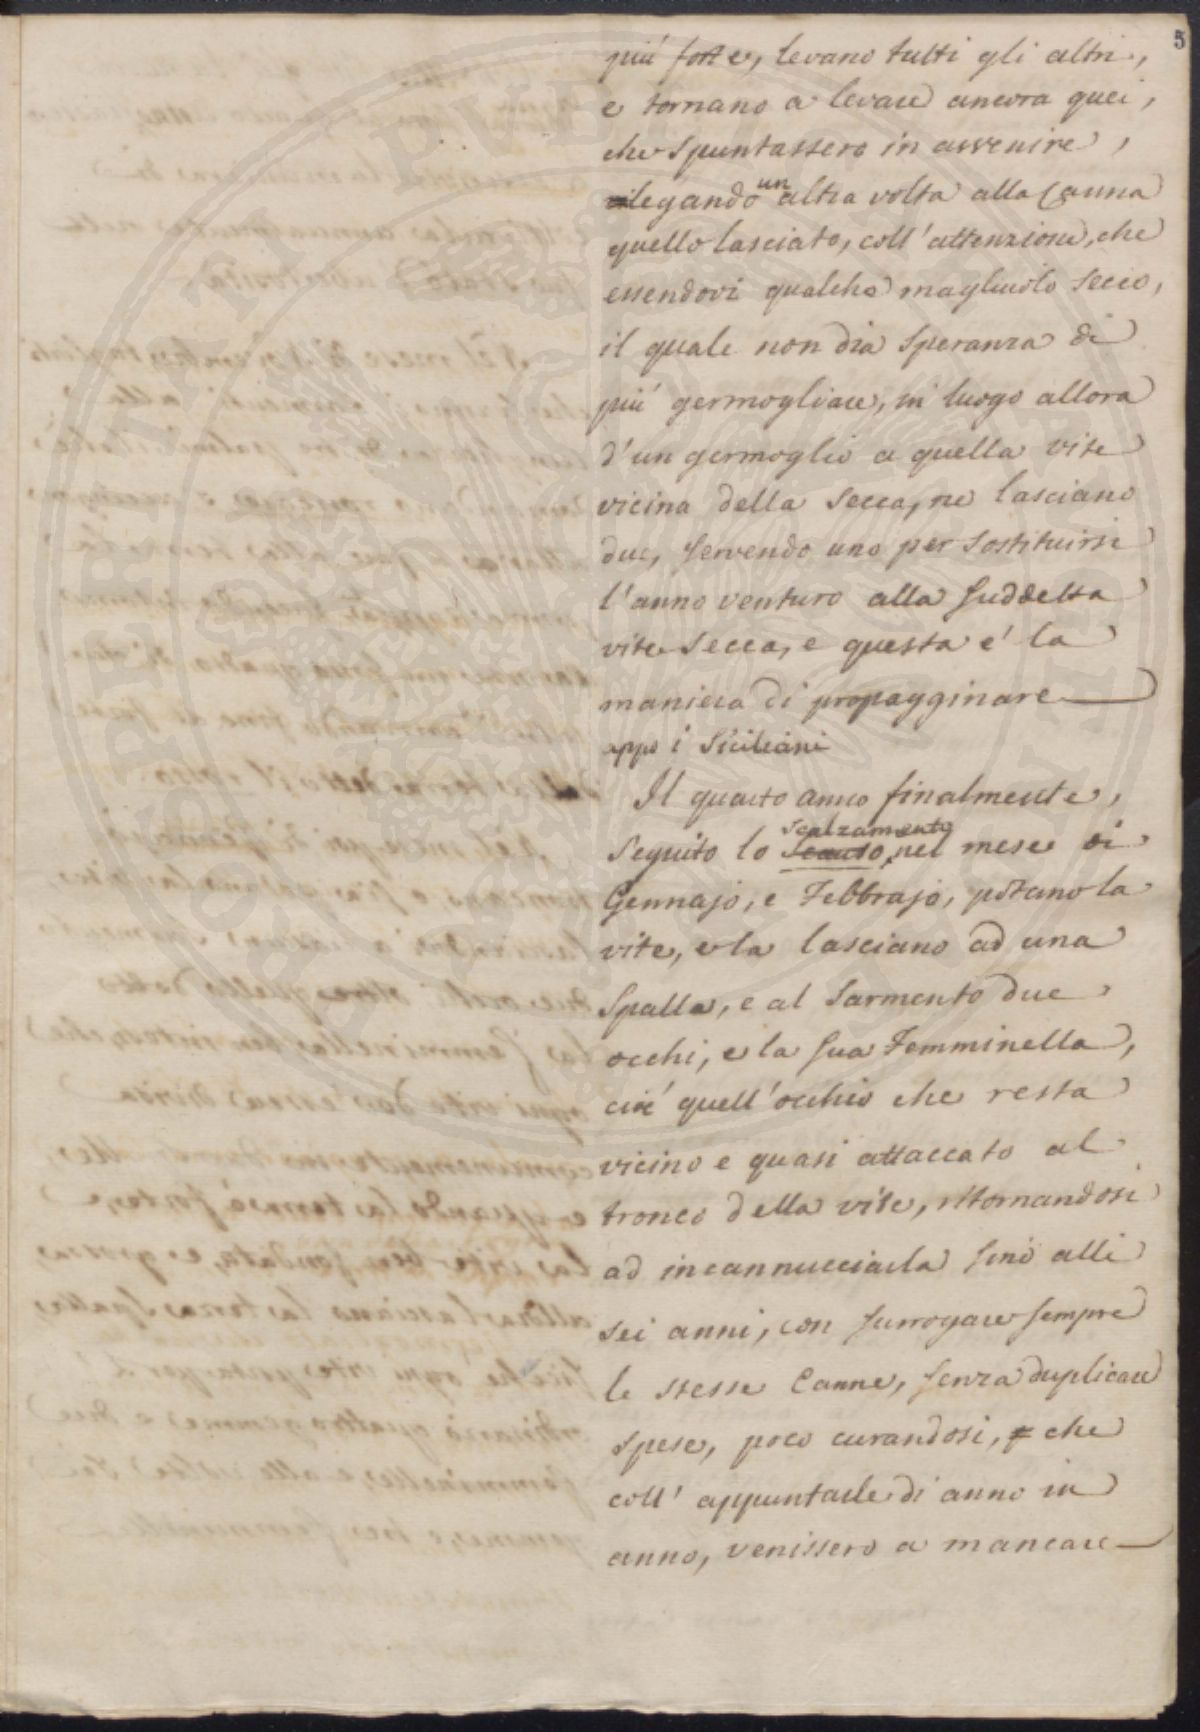 5
piú forte, levano tutti gli altri,
e tornano a levare ancora quei,
che spuntassero in avvenire,
legando un altra volta alla Canna
quello lasciato, coll'attenzione, che
essendovi qualche magliuolo secco,
il quale non dia speranza di
piú germogliare, in luogo allora
d'un germoglio a quella vite
vicina della secca, ne lasciano
due, servendo uno per sostituirsi
l'anno venturo alla suddetta
vite secca, e questa é la
maniera di propagginare
appo i Siciliani
Il quarto anno finalmente,
seguito lo scalzamento nel mese di
Gennajo, e Febbrajo, potano la
vite, e la lasciano ad una
spalla, e al sarmento due
occhi, e la sua Femminella,
cioé quell'occhio che resta
vicino e quasi attaccato al
tronco della vite, ritornandosi
ad incannucciarla sino alli
sei anni, con surrogare sempre
le stesse Canne, senza duplicare
spese, poco curandosi, che
coll'appuntarle di anno in
anno, venissero a mancare